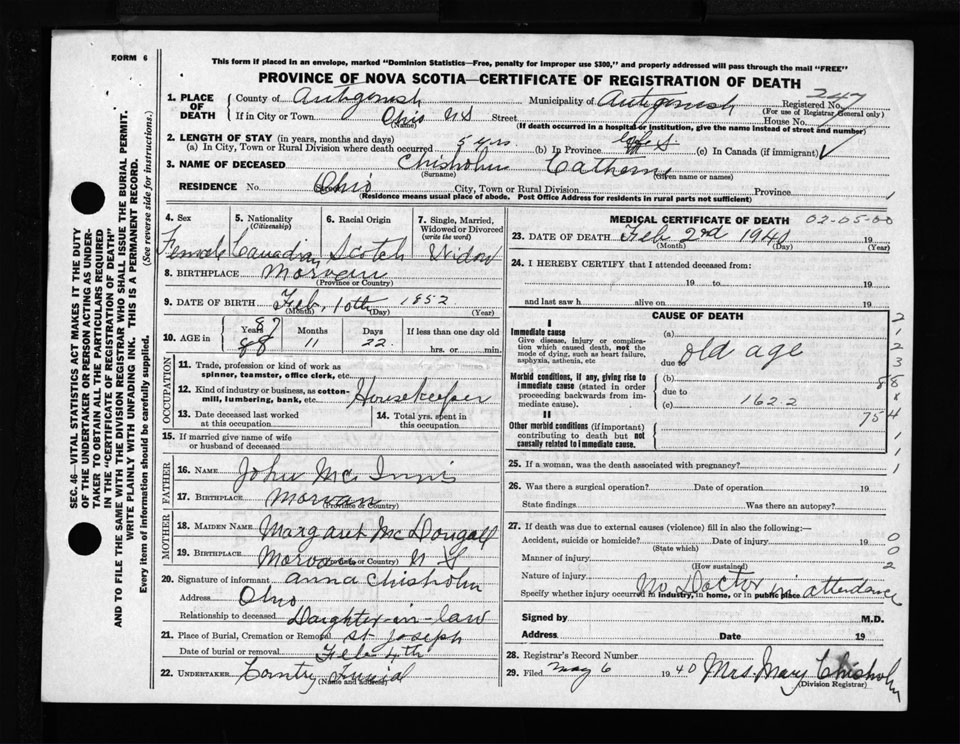 FORM 6
This form if placed in an envelope, marked "Dominion Statistics—Free, penalty for improper use $300," and properly addressed will pass through the mail "FREE"
PROVINCE OF NOVA SCOTIA—CERTIFICATE OF REGISTRATION OF DEATH
SEC. 46—VITAL STATISTICS ACT MAKES IT THE DUTY
OF THE UNDERTAKER OR PERSON ACTING AS UNDER-
TAKER TO OBTAIN ALL THE PARTICULARS REQUIRED
IN THE "CERTIFICATE OF REGISTRATION OF DEATH"
AND TO FILE THE SAME WITH THE DIVISION REGISTRAR WHO SHALL ISSUE THE BURIAL PERMIT.
WRITE PLAINLY WITH UNFADING INK. THIS IS A PERMANENT RECORD.
Every item of information should be carefully supplied. (See reverse side for instructions.)
1. PLACE OF DEATH
County of Antigonish Municipality of Antigonish Registered No. 247
(For use of Registrar General only)
If in City or Town Ohio NS Street House No.
(Name) (If death occurred in a hospital or institution, give the name instead of street and number)
2. LENGTH OF STAY (in years, months and days)
(a) In City, Town or Rural Division where death occurred 5 yrs. (b) In Province (c) In Canada (if immigrant)
3. NAME OF DECEASED Chisholm Catherine
(Surname) (Given name or names)
RESIDENCE No. Ohio City, Town or Rural Division Province
(Residence means usual place of abode. Post Office Address for residents in rural parts not sufficient)
4. Sex 5. Nationality (Citizenship) 6. Racial Origin 7. Single, Married, Widowed or Divorced (write the word)
Female Canadian Scotch Widow
8. BIRTHPLACE Morven
(Province or Country)
9. DATE OF BIRTH Feb. 10th 1852
(Month) (Day) (Year)
10. AGE in Years Months Days If less than one day old
87 88 11 22 hrs. or min.
OCCUPATION
11. Trade, profession or kind of work as
spinner, teamster, office clerk, etc.
12. Kind of industry or business, as cotton-
mill, lumbering, bank, etc. Housekeeper
13. Date deceased last worked at this occupation 14. Total yrs. spent in this occupation
15. If married give name of wife
or husband of deceased
FATHER
16. NAME John McInnis
17. BIRTHPLACE Morvan
(Province or Country)
MOTHER
18. MAIDEN NAME Margaret McDougall
19. BIRTHPLACE Morvan N S
(Province or Country)
20. Signature of informant Anna Chisholm
Address Ohio
Relationship to deceased Daughter-in-law
21. Place of Burial, Cremation or Removal St Joseph
Date of burial or removal Feb 4th
22. UNDERTAKER Country
(Name and address)
MEDICAL CERTIFICATE OF DEATH 02-05-00
23. DATE OF DEATH Feb 2nd 1940 19
(Month) (Day) (Year)
24. I HEREBY CERTIFY that I attended deceased from:
19 to 19
and last saw h alive on 19
CAUSE OF DEATH
I
Immediate cause
Give disease, injury or complica-
tion which caused death, not the
mode of dying, such as heart failure,
asphyxia, asthenia, etc
(a)
old age
due to
Morbid conditions, if any, giving rise to
immediate cause (stated in order
proceeding backwards from im-
mediate cause).
(b)
due to
(c) 162.2
II
Other morbid conditions (if important)
contributing to death but not
causally related to immediate cause.
2
1
2
3
88
x
75 4
1
1
1
25. If a woman, was the death associated with pregnancy?
26. Was there a surgical operation? Date of operation 19
State findings Was there an autopsy?
27. If death was due to external causes (violence) fill in also the following:—
Accident, suicide or homicide? Date of injury 19
(State which)
Manner of injury
(How sustained)
Nature of injury
0
0
2
No Doctor in attendance
Specify whether injury occurred in industry, in home, or in public place
Signed by M.D.
Address Date 19
28. Registrar's Record Number
29. Filed May 6 1940 Mrs. Mary Chisholm
(Division Registrar)